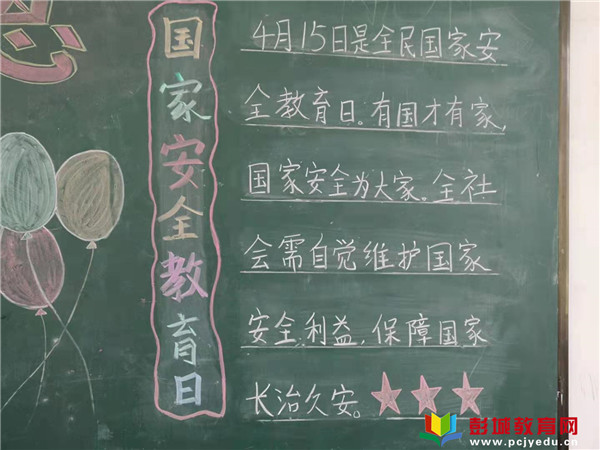 国家安全教育日
4月15日是全民国家安
全教育日。有国才有家,
国家安全为大家,全社
会需自觉维护国家
安全利益,保障国家
长治久安。
彭城教育网
www.pcjyedu.cn